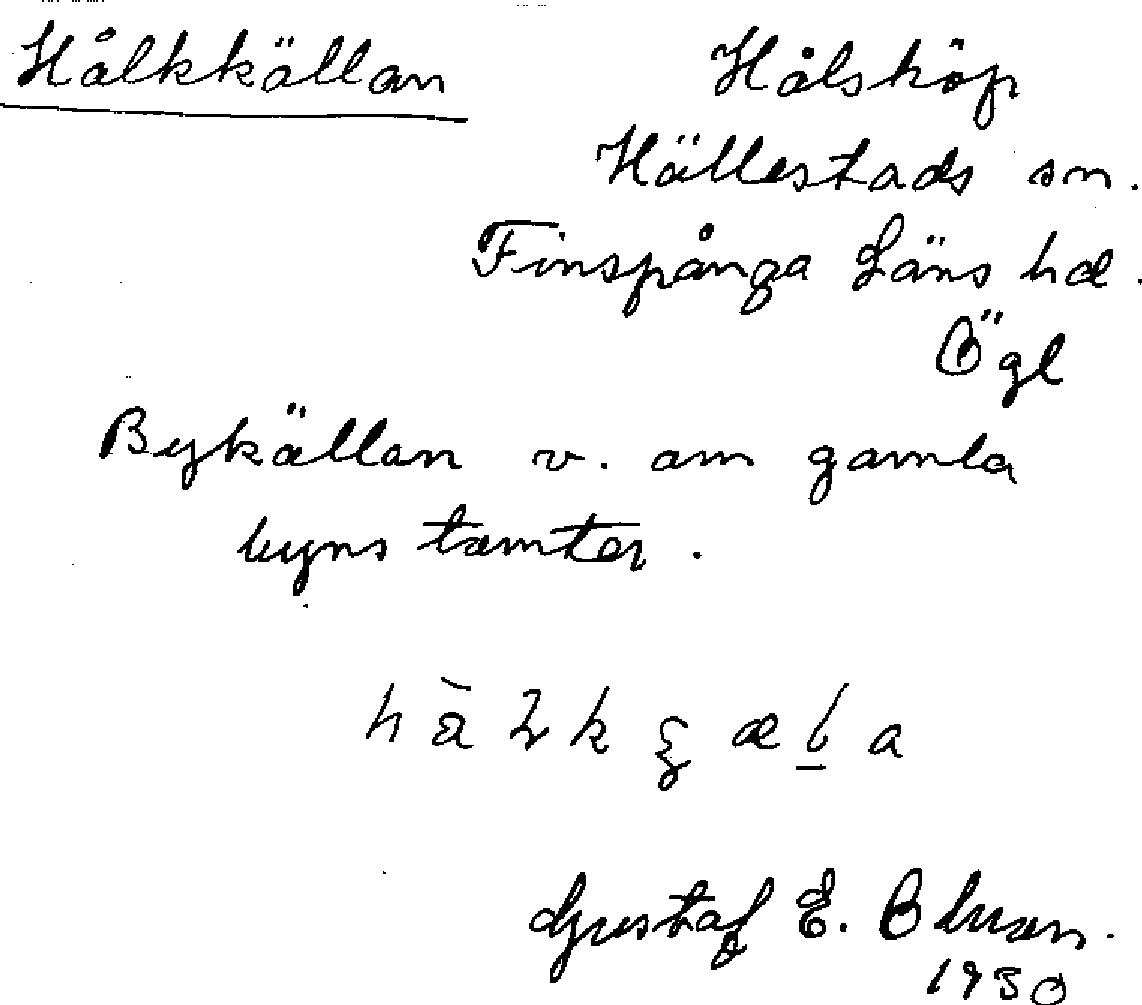 Hålkkällan Hålsköp
Hällestads sn.
Finspånga Läns hd.
Ögl
Bykällan v. om gamla
byns tomter.
Gustaf E.
1930